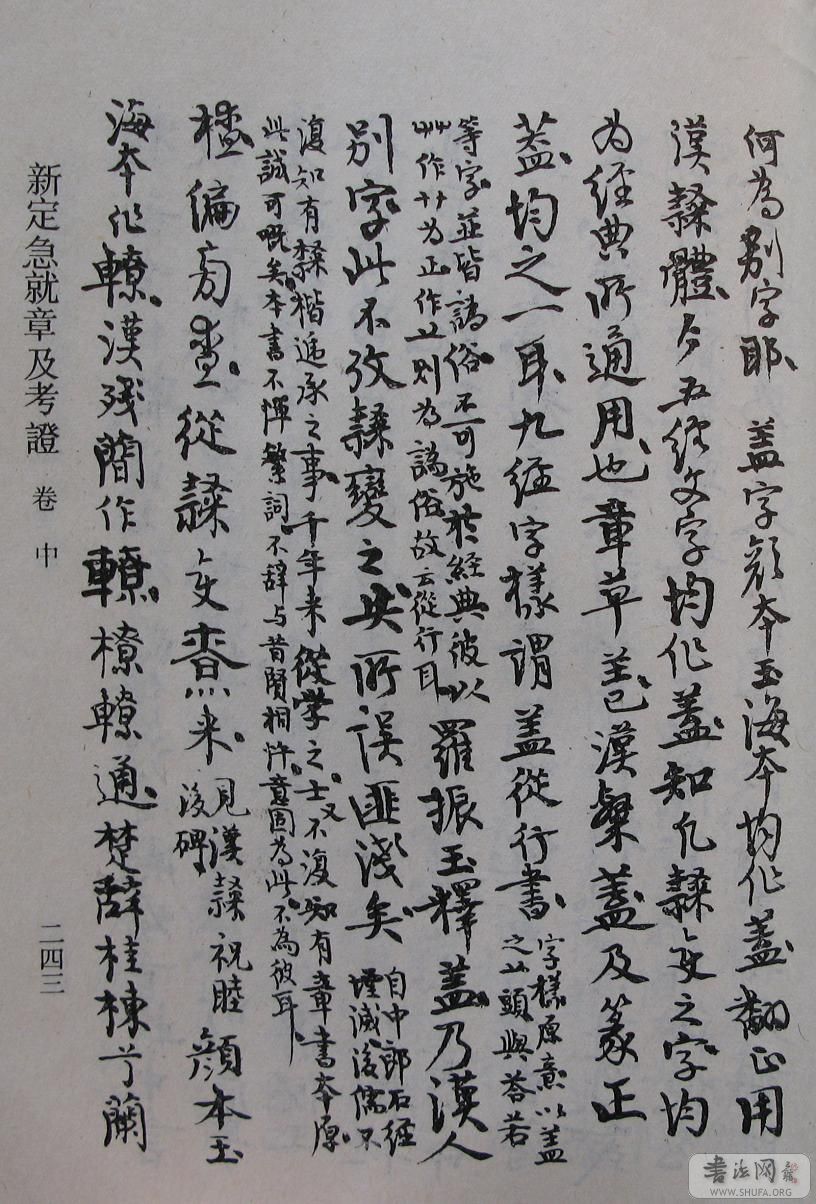 何為别字耶 盖字顔本玉海本均作蓋翻正用
漢隸體今五經文字均作蓋知凡隸变之字均
为經典所通用也章草盖已漢槃蓋及篆正
葢均之一耳九經字樣謂盖從行書
字樣原意以盖
之䒑頭與荅若
等字並皆譌俗不可施於經典彼以
艸作艹为正作䒑则为譌俗故云從行耳
羅振玉釋蓋乃漢人
别字此不攷隸變之失所误匪淺矣
自中郎石經
堙滅後儒不
復知有隸楷递承之事千年来從学之士又不復知有章書本原
此誠可嘅矣本書不憚繁詞不辞与昔賢相忤意固為此不為彼耳
偏旁從隸变来
見漢隸祝睦
後碑
顔本玉
海本作轑漢残簡作轑橑轑通楚辭桂棟兮蘭
新定急就章及考證 卷中 二四三
书法网
WWW.SHUFA.ORG